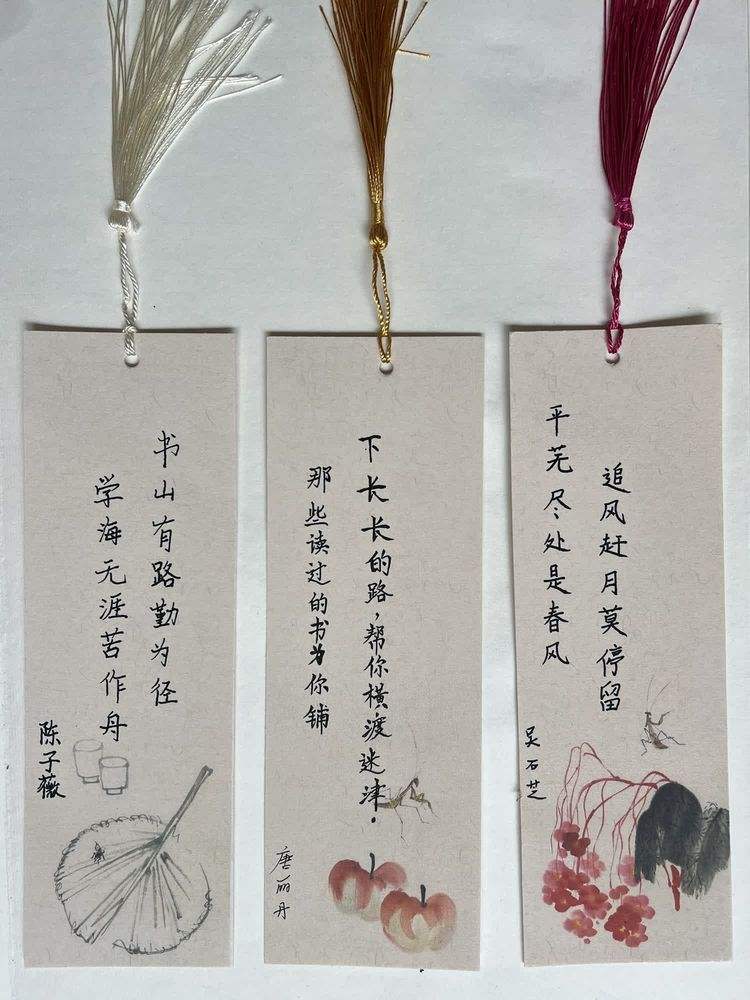 书山有路勤为径
学海无涯苦作舟
陈子薇
那些读过的书为你铺
下长长的路，帮你横渡迷津。
唐丽丹
追风赶月莫停留
平芜尽处是春风
吴石芝